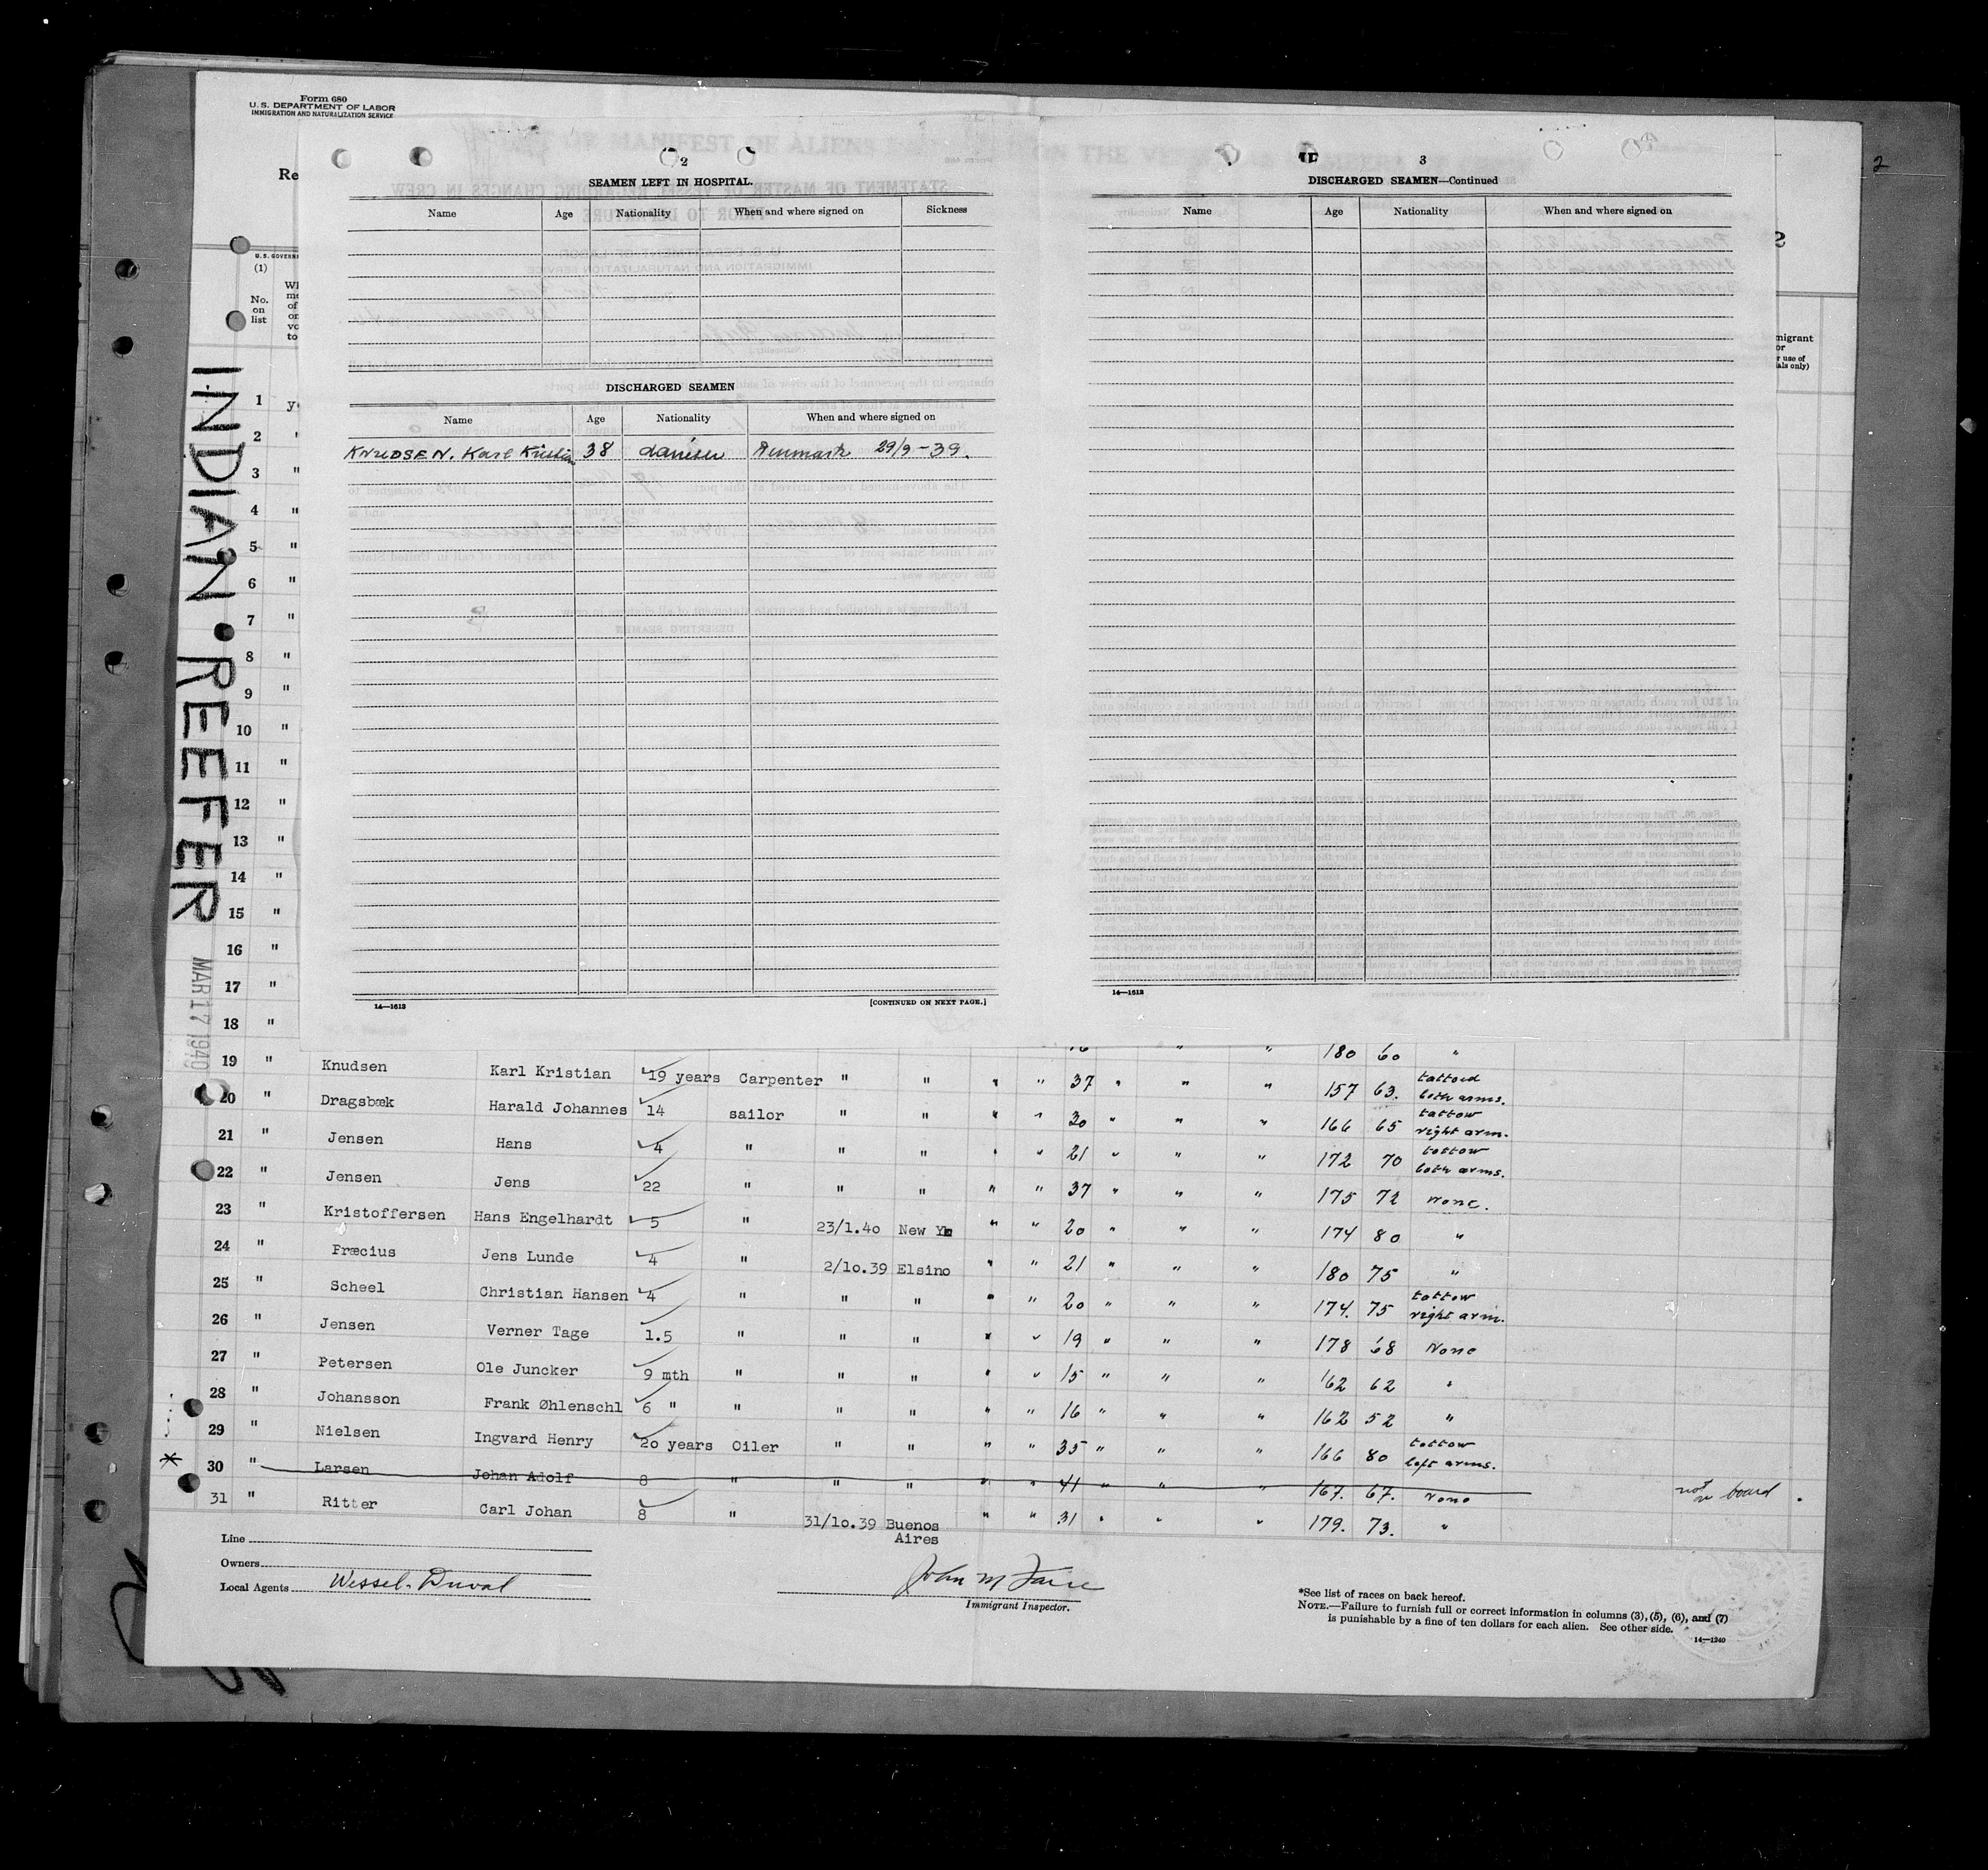 Form 680
U.S. DEPARTMENT OF LABOR
IMMIGRATION AND NATURALIZATION SERVICE
2
Re
2
U.S. GOVERN
(1)
No.
on
list
migrant
or
r use of
als only)
INDIAN REEFER
MAR 17 1940
2
SEAMEN LEFT IN HOSPITAL.
Name Age Nationality When and where signed on Sickness
DISCHARGED SEAMEN
Name Age Nationality When and where signed on
KNUDSEN. Karl Kristian 38 danish Denmark 29/9-39.
14—1613 [CONTINUED ON NEXT PAGE.]
3
DISCHARGED SEAMEN—Continued
Name Age Nationality When and where signed on
14—1613
1
2 "
3 "
4 "
5 "
6 "
7 "
8 "
9 "
10 "
11 "
12 "
13 "
14 "
15 "
16 "
17 "
18 "
" " 180 60 "
19 " Knudsen Karl Kristian 19 years Carpenter " " " " 37 " " " 157 63. tattoed both arms.
20 " Dragsbæk Harald Johannes 14 sailor " " " " 30 " " " 166 65 tattow right arm.
21 " Jensen Hans 4 " " " " " 21 " " " 172 70 tattow both arms.
22 " Jensen Jens 22 " " " " " 37 " " " 175 72 None.
23 " Kristoffersen Hans Engelhardt 5 " 23/1.40 New Yo " " 20 " " " 174 80 "
24 " Fræcius Jens Lunde 4 " 2/10.39 Elsino " " 21 " " " 180 75 "
25 " Scheel Christian Hansen 4 " " " " " 20 " " " 174. 75 tattow right arm.
26 " Jensen Verner Tage 1.5 " " " " " 19 " " " 178 68 None
27 " Petersen Ole Juncker 9 mth " " " " " 15 " " " 162 62 "
28 " Johansson Frank Øhlenschl 6 " " " " " " 16 " " " 162 52 "
29 " Nielsen Ingvard Henry 20 years Oiler " " " " 35 " " " 166 80 tattow left arms.
30 " Larsen Johan Adolf 8 " " " " " 41 " " " 167. 67. None not on board.
31 " Ritter Carl Johan 8 " 31/10.39 Buenos Aires " " 31 " " " 179. 73. "
Line
Owners
Local Agents Wessel-Duval
Immigrant Inspector.
*See list of races on back hereof.
NOTE.—Failure to furnish full or correct information in columns (3), (5), (6), and (7)
is punishable by a fine of ten dollars for each alien. See other side.
14—1240